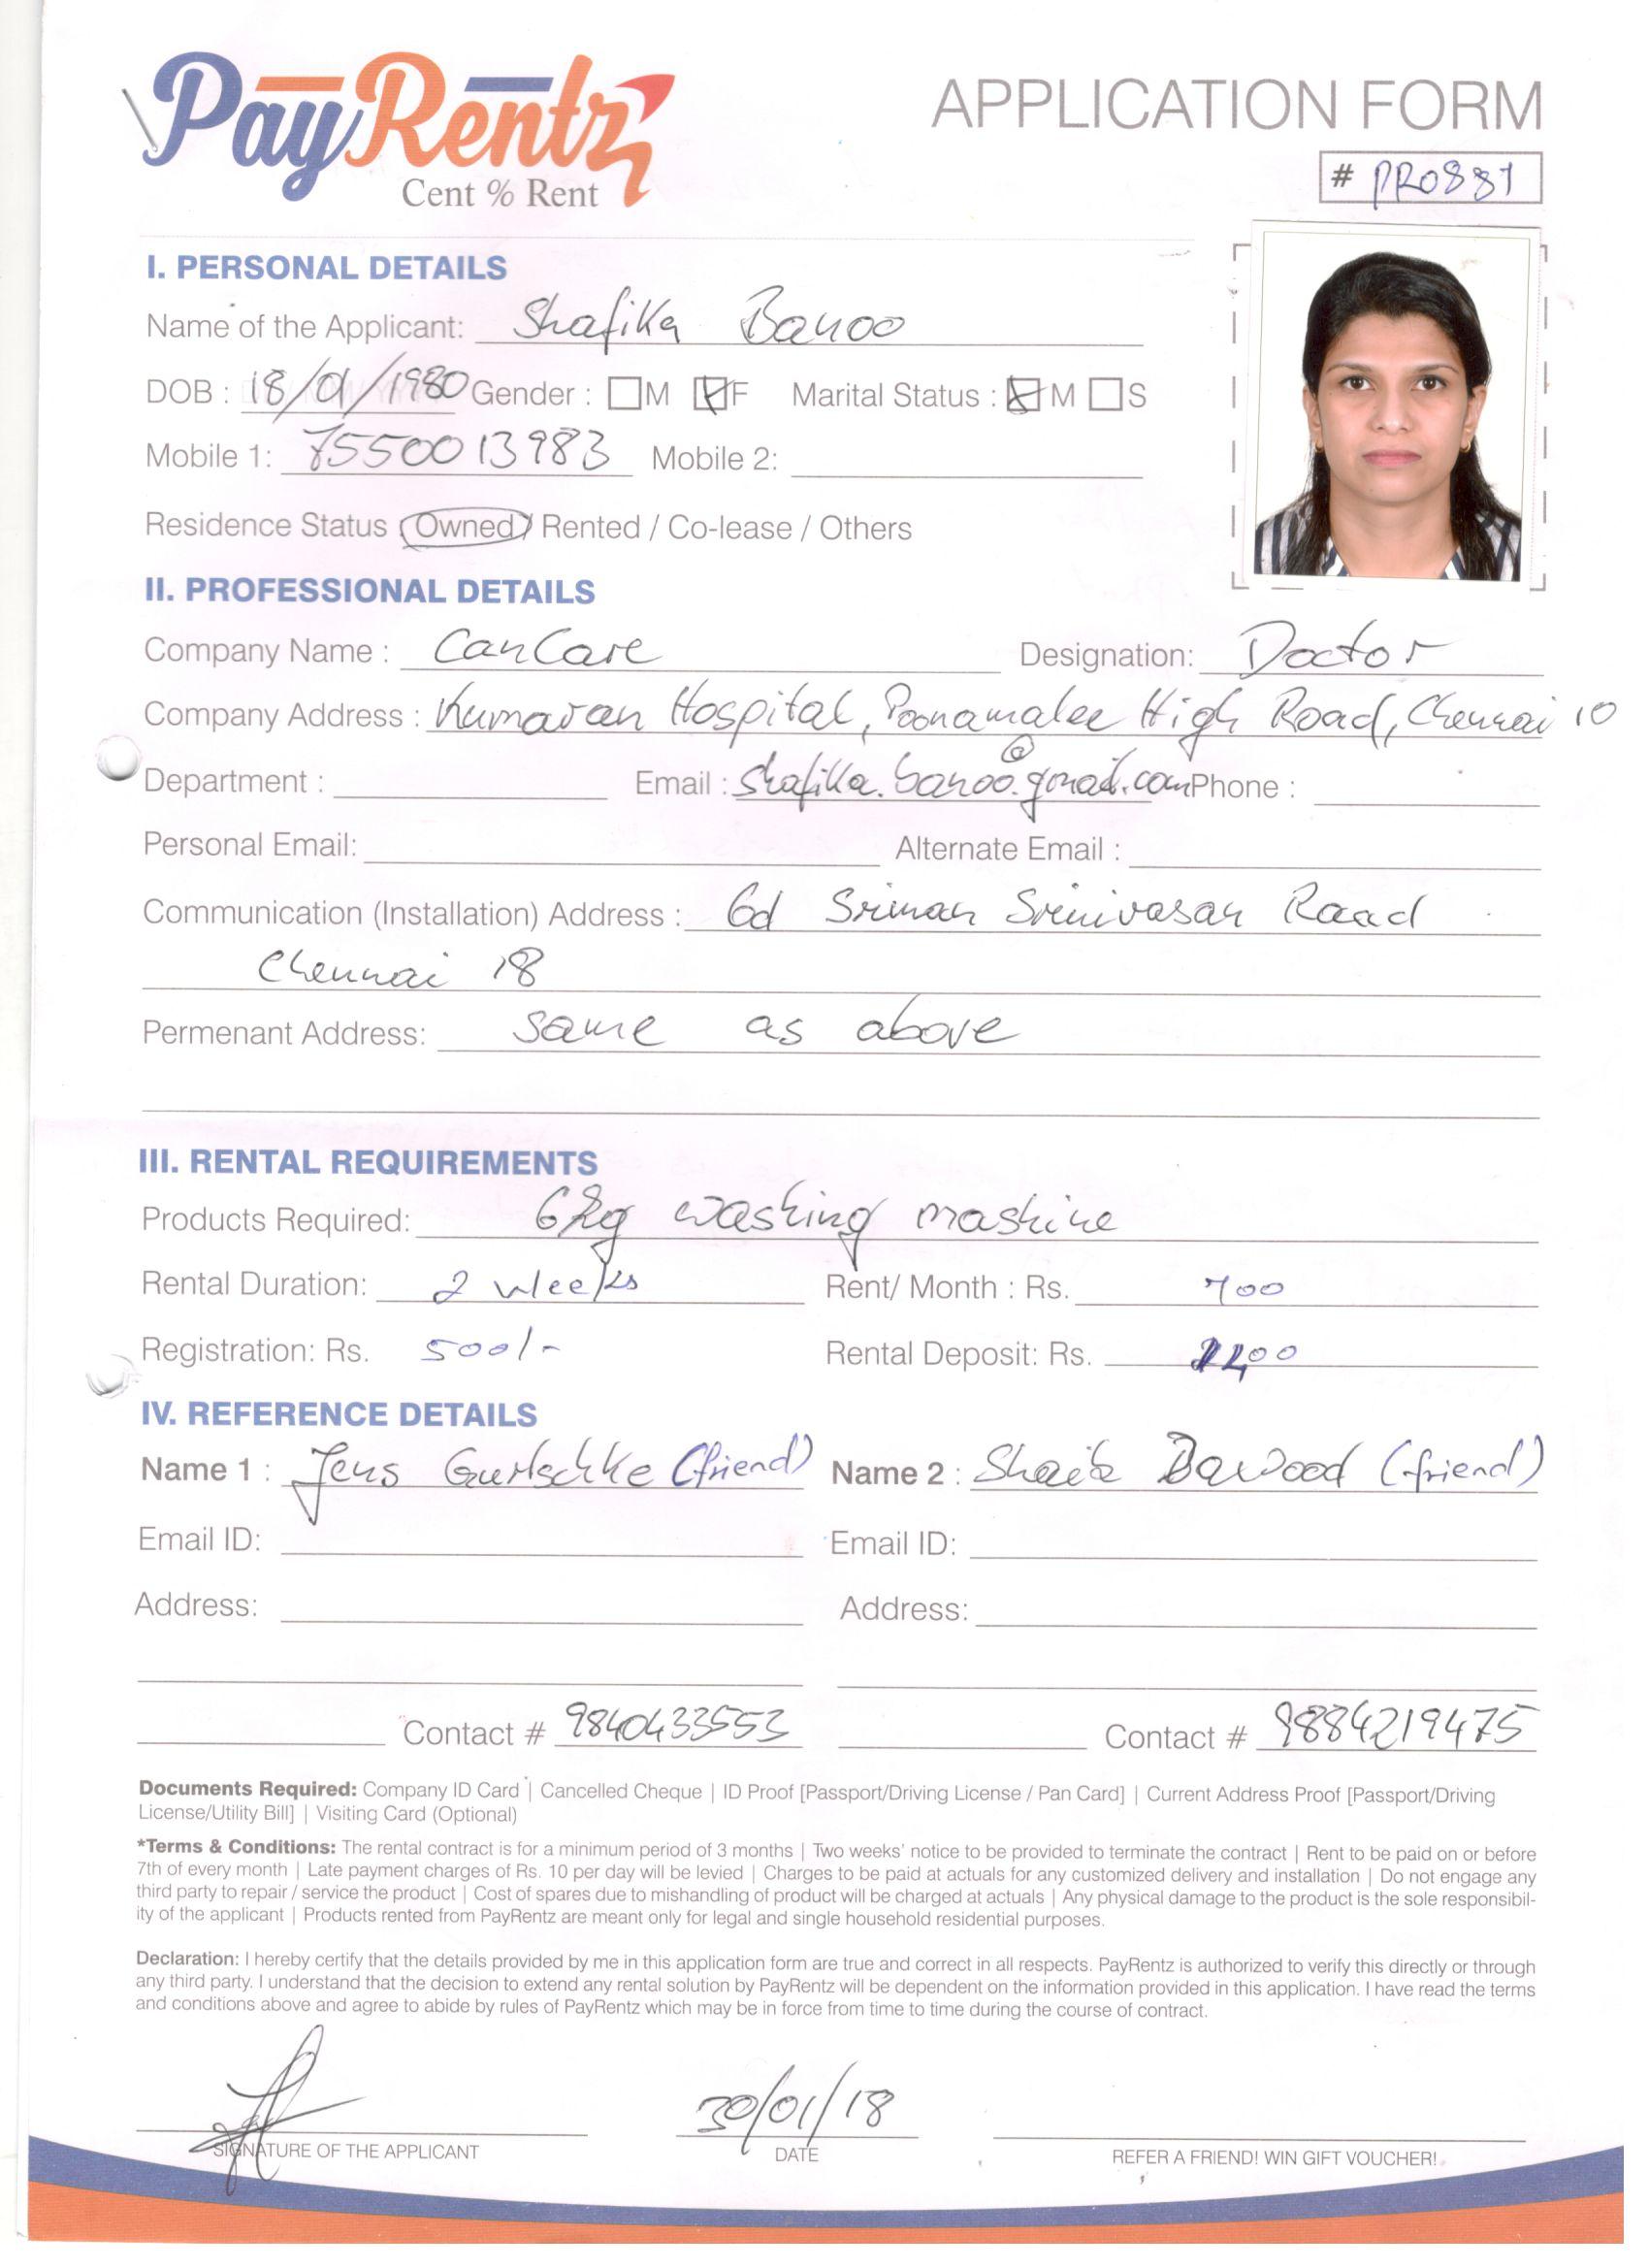 PayRentz
Cent % Rent
APPLICATION FORM
# PR0881
I. PERSONAL DETAILS
Name of the Applicant: Shafika Banoo
DOB : 18/01/1980 Gender : M F Marital Status : M S
Mobile 1: 7550013983 Mobile 2:
Residence Status (Owned) / Rented / Co-lease / Others
II. PROFESSIONAL DETAILS
Company Name : CanCare Designation: Doctor
Company Address : Kumaran Hospital, Poonamalee High Road, Chennai 10
Department : Email : shafika.banoo@gmail.com Phone :
Personal Email: Alternate Email :
Communication (Installation) Address : 6d Sriman Srinivasan Road
Chennai 18
Permenant Address: same as above
III. RENTAL REQUIREMENTS
Products Required: 6kg washing mashine
Rental Duration: 2 weeks Rent/ Month : Rs. 700
Registration: Rs. 500/- Rental Deposit: Rs.
IV. REFERENCE DETAILS
Name 1 : Jens (friend) Name 2 : Shaik Dawood (friend)
Email ID: Email ID:
Address: Address:
Contact # 9840433553 Contact # 9884219475
Documents Required: Company ID Card | Cancelled Cheque | ID Proof [Passport/Driving License / Pan Card] | Current Address Proof [Passport/Driving
License/Utility Bill] | Visiting Card (Optional)
*Terms & Conditions: The rental contract is for a minimum period of 3 months | Two weeks' notice to be provided to terminate the contract | Rent to be paid on or before
7th of every month | Late payment charges of Rs. 10 per day will be levied | Charges to be paid at actuals for any customized delivery and installation | Do not engage any
third party to repair / service the product | Cost of spares due to mishandling of product will be charged at actuals | Any physical damage to the product is the sole responsibil-
ity of the applicant | Products rented from PayRentz are meant only for legal and single household residential purposes.
Declaration: I hereby certify that the details provided by me in this application form are true and correct in all respects. PayRentz is authorized to verify this directly or through
any third party. I understand that the decision to extend any rental solution by PayRentz will be dependent on the information provided in this application. I have read the terms
and conditions above and agree to abide by rules of PayRentz which may be in force from time to time during the course of contract.
30/01/18
SIGNATURE OF THE APPLICANT DATE REFER A FRIEND! WIN GIFT VOUCHER!